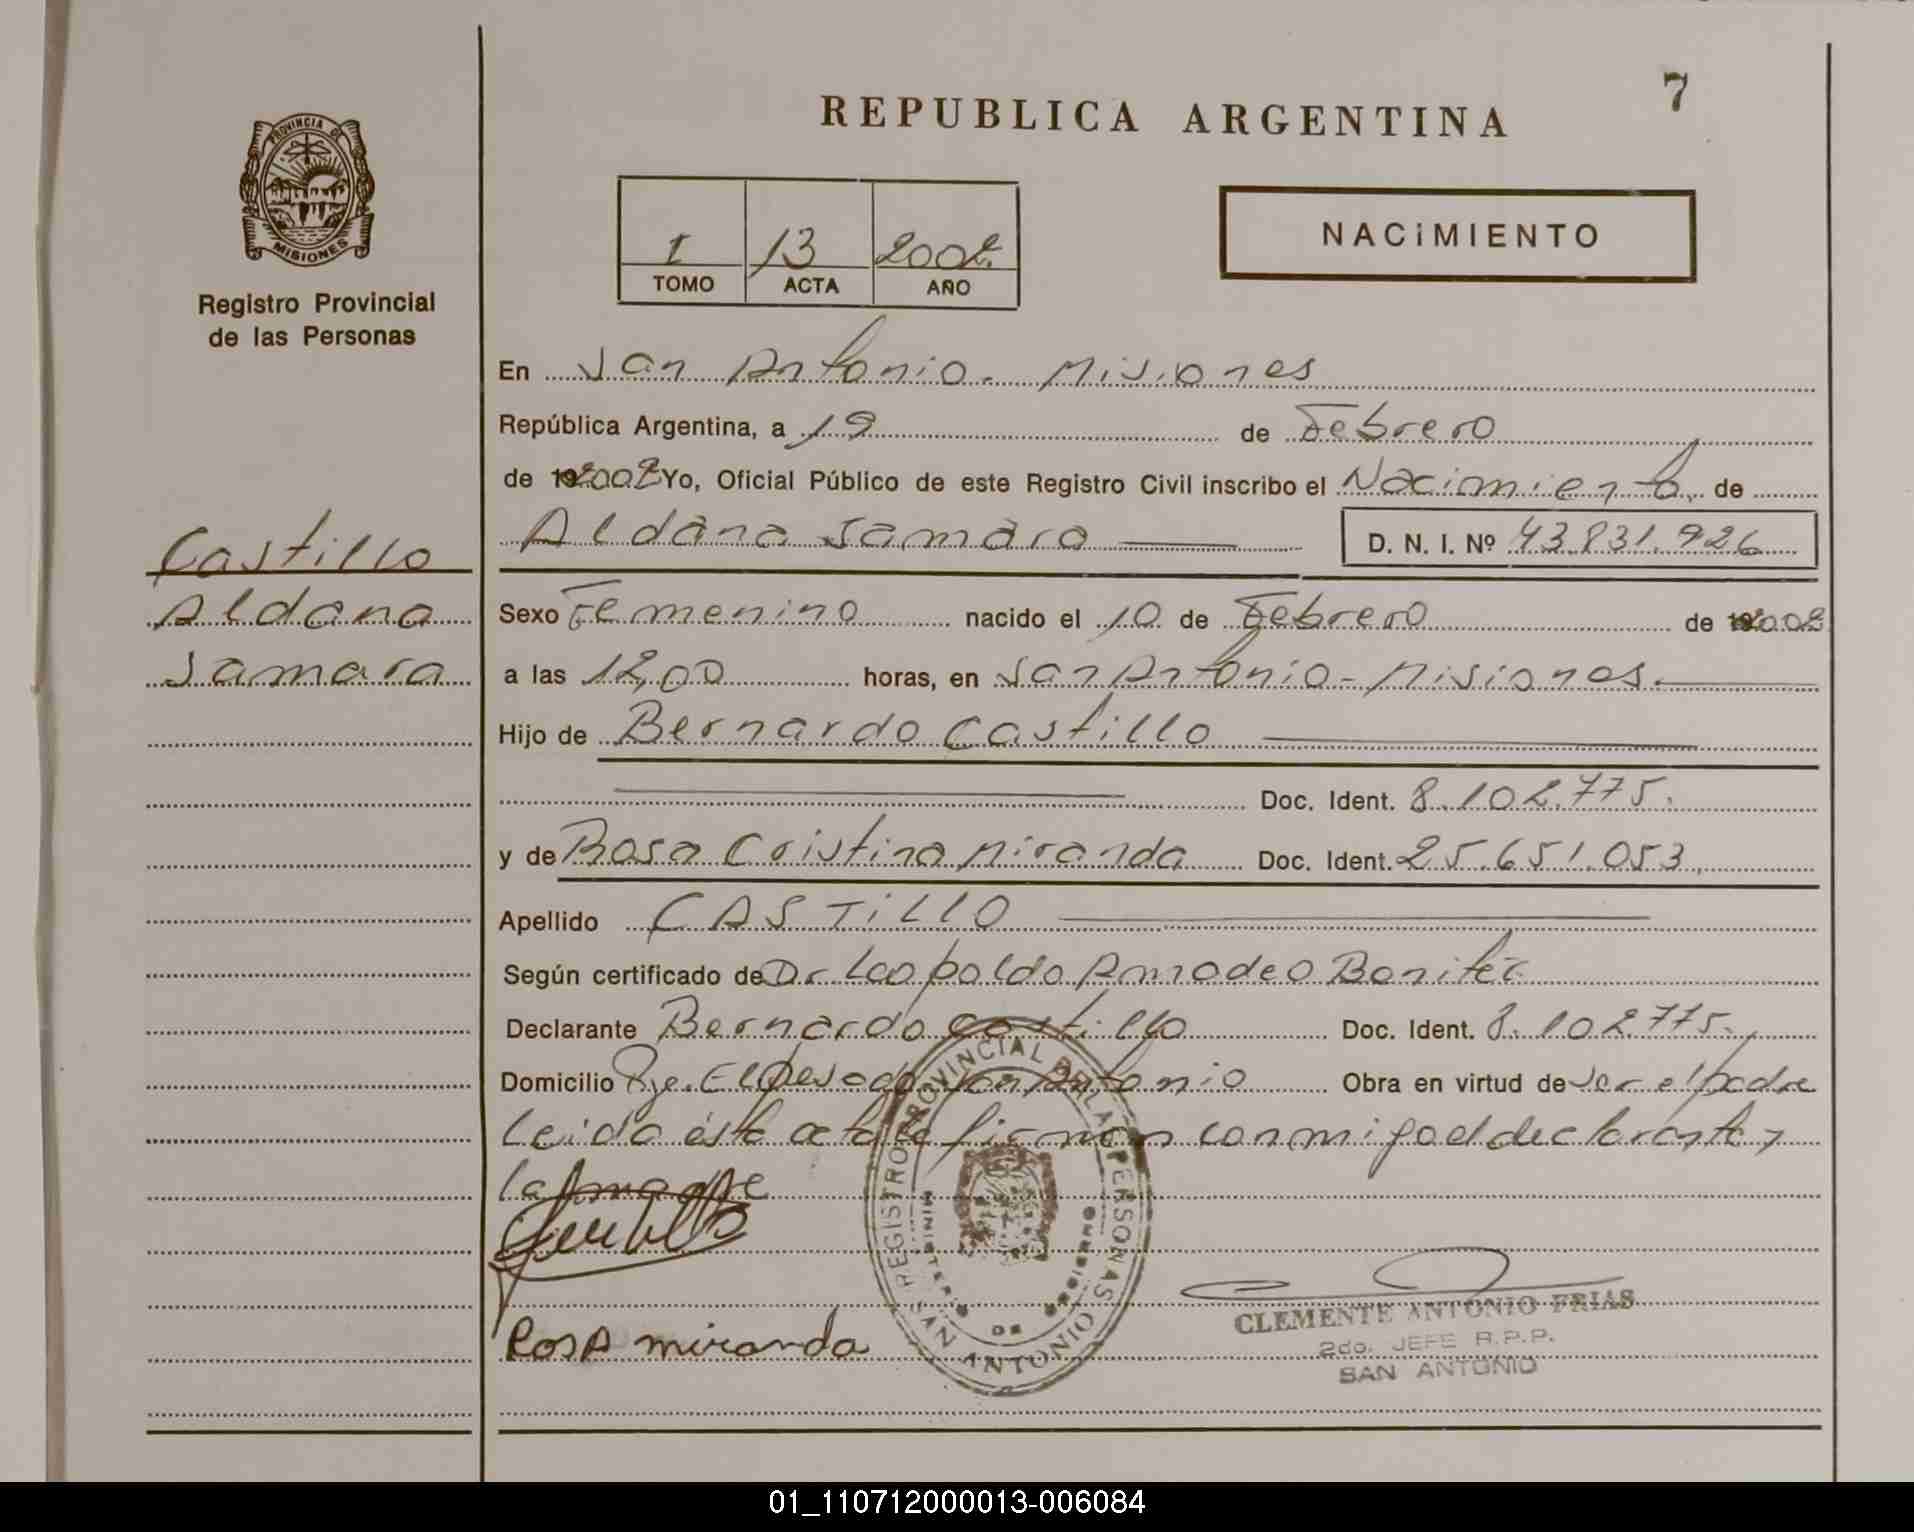 7
REPUBLICA ARGENTINA
PROVINCIA DE
MISIONES
Registro Provincial
de las Personas
I 13 2002
TOMO ACTA AÑO
NACIMIENTO
En San Antonio - Misiones
República Argentina, a 19 de Febrero
de 2002 Yo, Oficial Público de este Registro Civil inscribo el Nacimiento de
Aldana Samara D. N. I. Nº 43.831.926
Castillo
Aldana
Samara
Sexo Femenino nacido el 10 de Febrero de 2002
a las 12,00 horas, en San Antonio - Misiones.
Hijo de Bernardo Castillo
Doc. Ident. 8.102.775.
y de Rosa Cristina Miranda Doc. Ident. 25.651.053
Apellido CASTILLO
Según certificado de Dr. Leopoldo Amadeo
Declarante Bernardo Castillo Doc. Ident. 8.102.775.
Domicilio Pje. El Pesado San Antonio Obra en virtud de ser el padre
Leida ésta acta la firman conmigo el declarante y
la madre
REGISTRO PROVINCIAL DE LAS PERSONAS
MINISTERIO DE GOBIERNO
SAN ANTONIO
Rosa miranda
CLEMENTE ANTONIO FRIAS
2do. JEFE R.P.P.
SAN ANTONIO
01_110712000013-006084